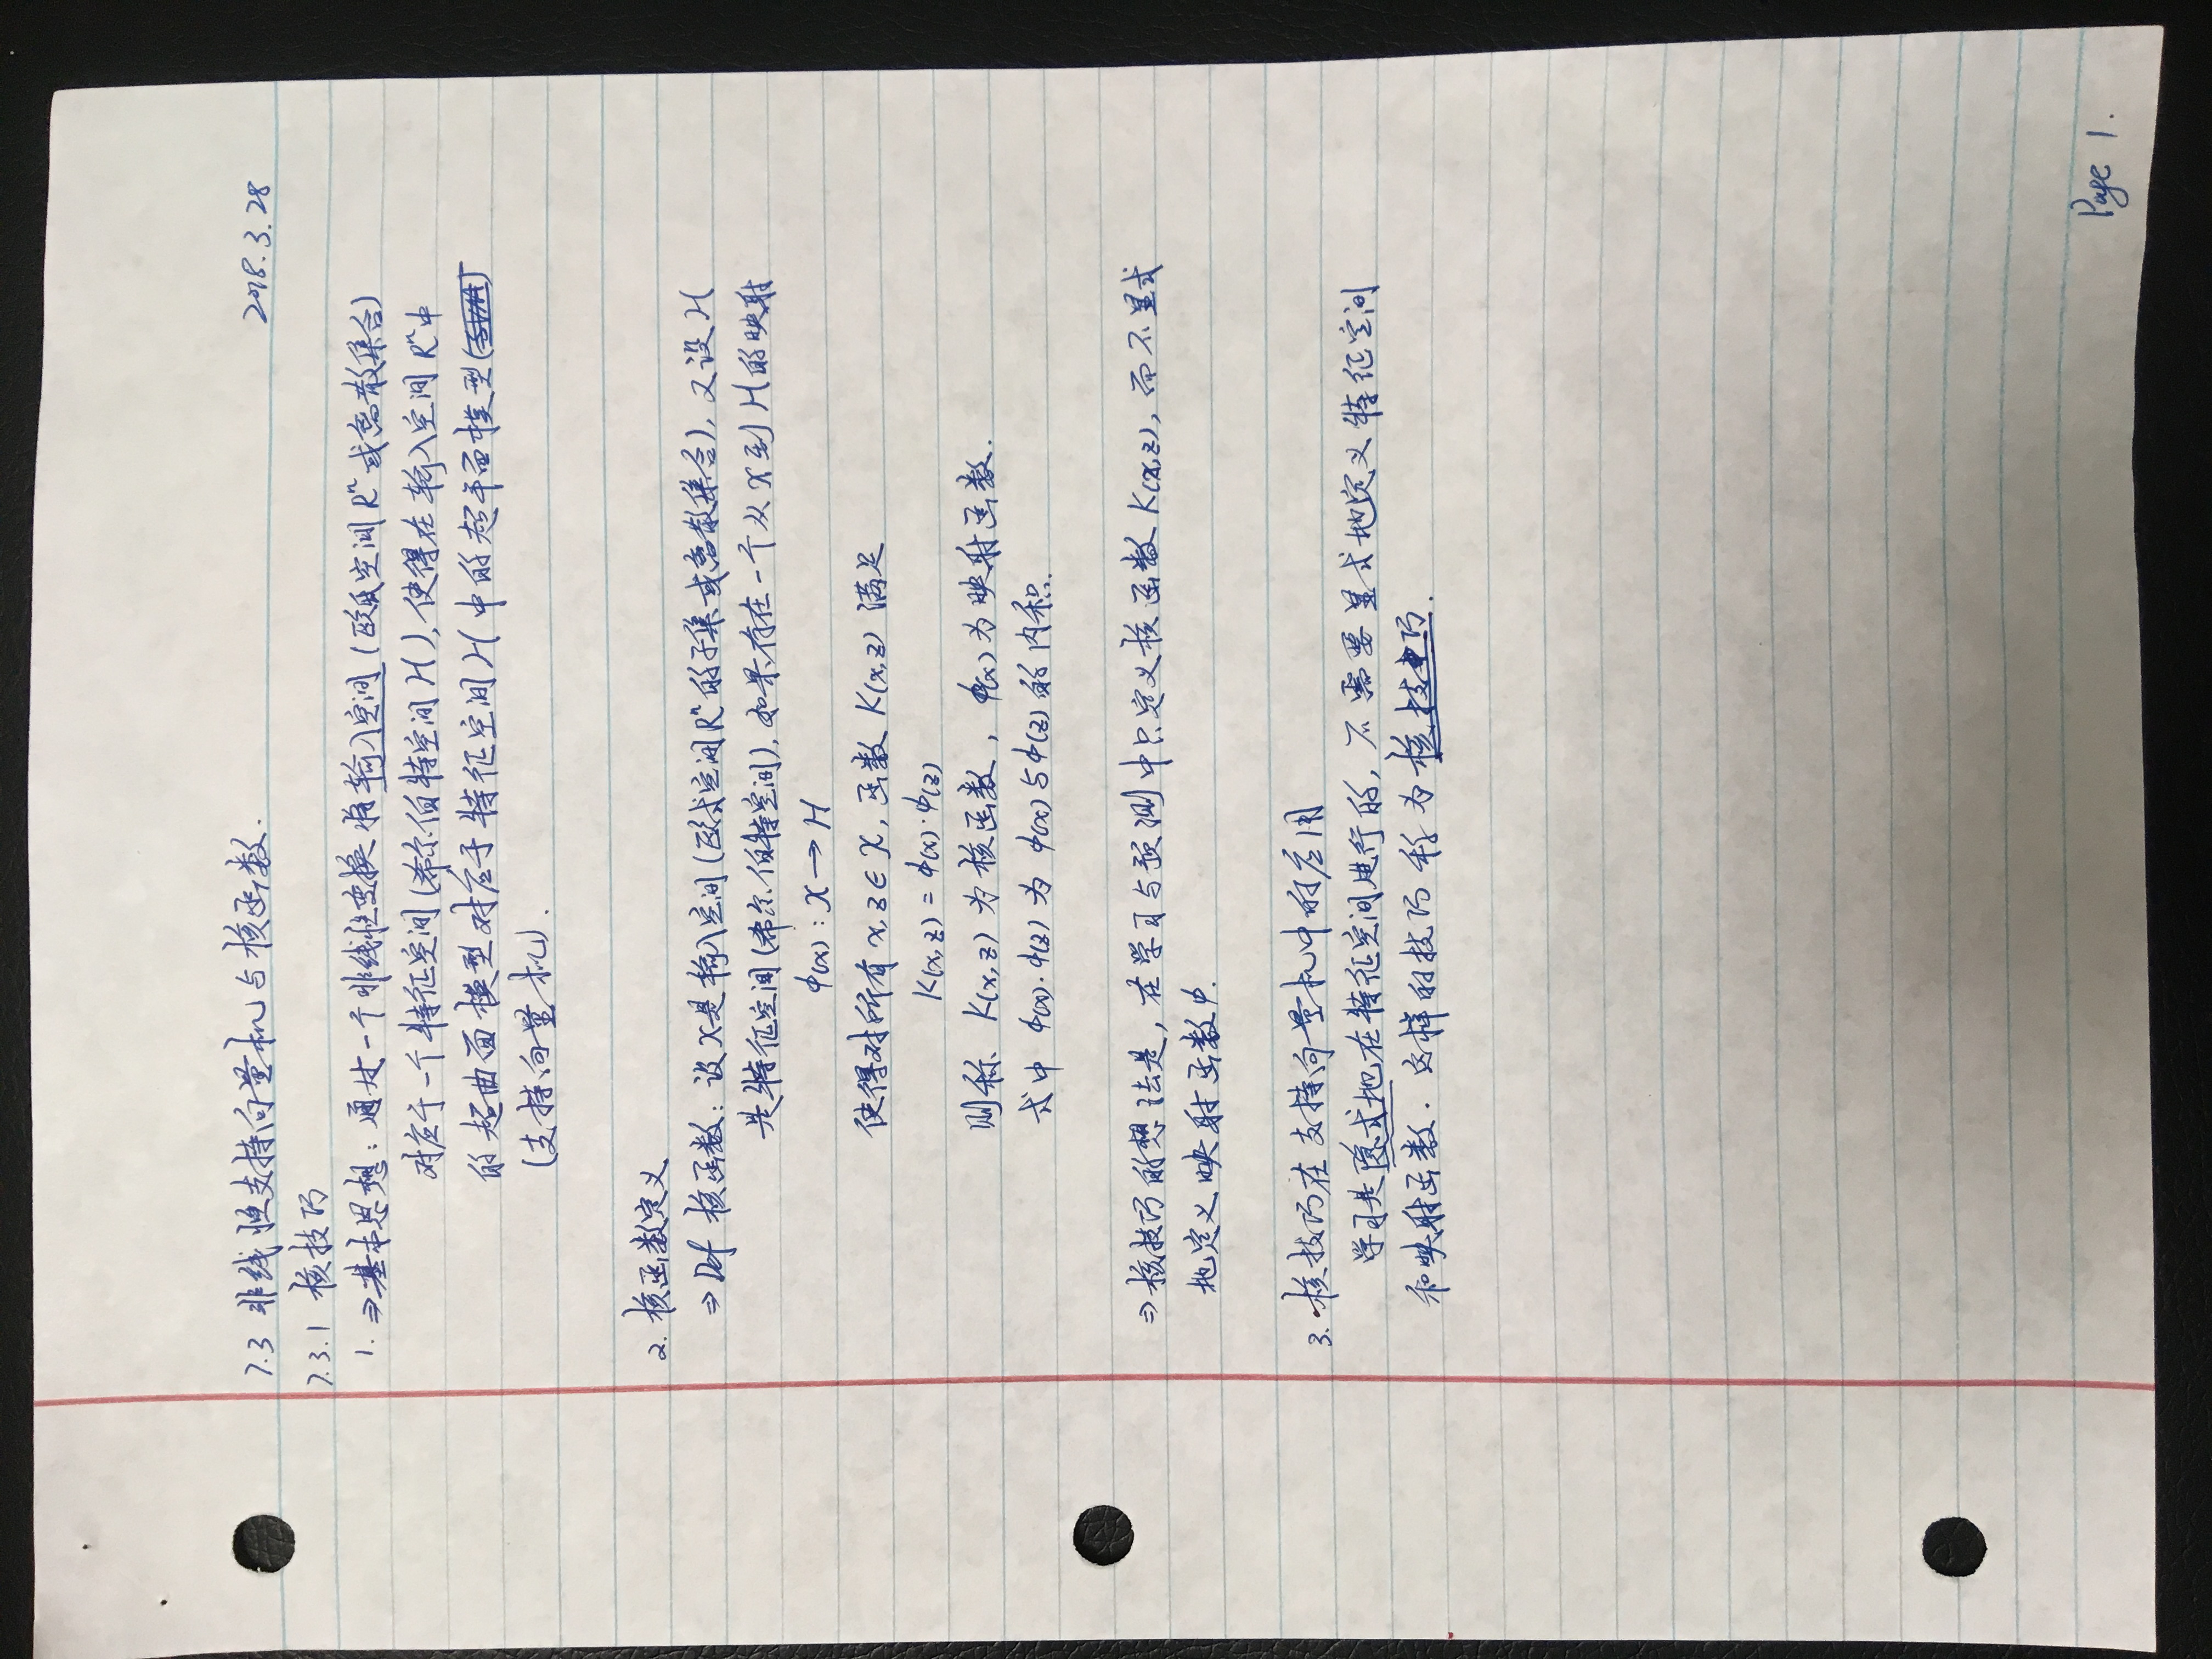 7.3 非线性支持向量机与核函数. 2018.3.28
7.3.1 核技巧
1. ⇒ 基本思想: 通过一个非线性变换将输入空间 (欧氏空间 Rⁿ 或离散集合)
对应于一个特征空间 (希尔伯特空间 H), 使得在输入空间 Rⁿ 中
的超曲面模型对应于特征空间 H 中的超平面模型
(支持向量机).
2. 核函数定义
⇒ Def 核函数: 设 X 是输入空间 (欧式空间 Rⁿ 的子集或离散集合), 又设 H
为特征空间 (希尔伯特空间), 如果存在一个从 X 到 H 的映射
ϕ(x): X → H
使得对所有 x, z ∈ X, 函数 K(x,z) 满足
K(x,z) = ϕ(x)·ϕ(z)
则称 K(x,z) 为核函数, ϕ(x) 为映射函数.
式中 ϕ(x)·ϕ(z) 为 ϕ(x) 与 ϕ(z) 的内积.
⇒ 核技巧的想法是, 在学习与预测中只定义核函数 K(x,z), 而不显式
地定义映射函数 ϕ.
3. 核技巧在支持向量机中的应用
学习是隐式地在特征空间进行的, 不需要显式地定义特征空间
和映射函数. 这样的技巧称为核技巧.
Page 1.